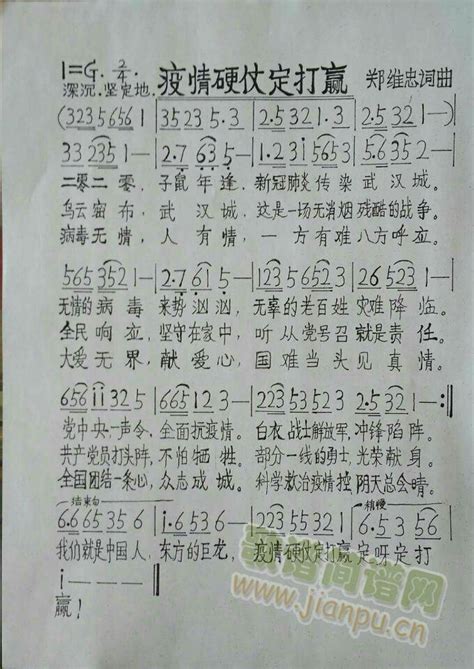 1=G 2/4
深沉.坚定地.
疫情硬仗定打赢 郑维忠词曲
(3235656i|3523 5·3|2·5321—)
332351—|2·7635—|1·2315653|2·5321—
二零二零,子鼠年逢,新冠肺炎传染武汉城。
乌云密布,武汉城,这是一场无消烟残酷的战争。
病毒无情,人有情,一方有难八方呼应。
5653521—|2·7615—|12356523|265231—
无情的病毒来势汹汹,无辜的老百姓灾难降临。
全民响应,坚守在家中,听从党号召就是责任。
大爱无界,献爱心,国难当头见真情。
656ii325|66512 3—|22355352|2·5321—
党中央一声令,全面抗疫情。白衣战士解放军,冲锋陷阵。
共产党员打头阵,不怕牺牲。部分一线的勇士,光荣献身。
全国团结一条心,众志成城。科学救治疫情控,阴天总会晴。
结束句 稍慢
6·665356|i·6535—|22355321|2·5356
我们就是中国人,东方的巨龙,疫情硬仗定打赢定呀定打
i———
赢!
歌谱简谱网
www.jianpu.cn